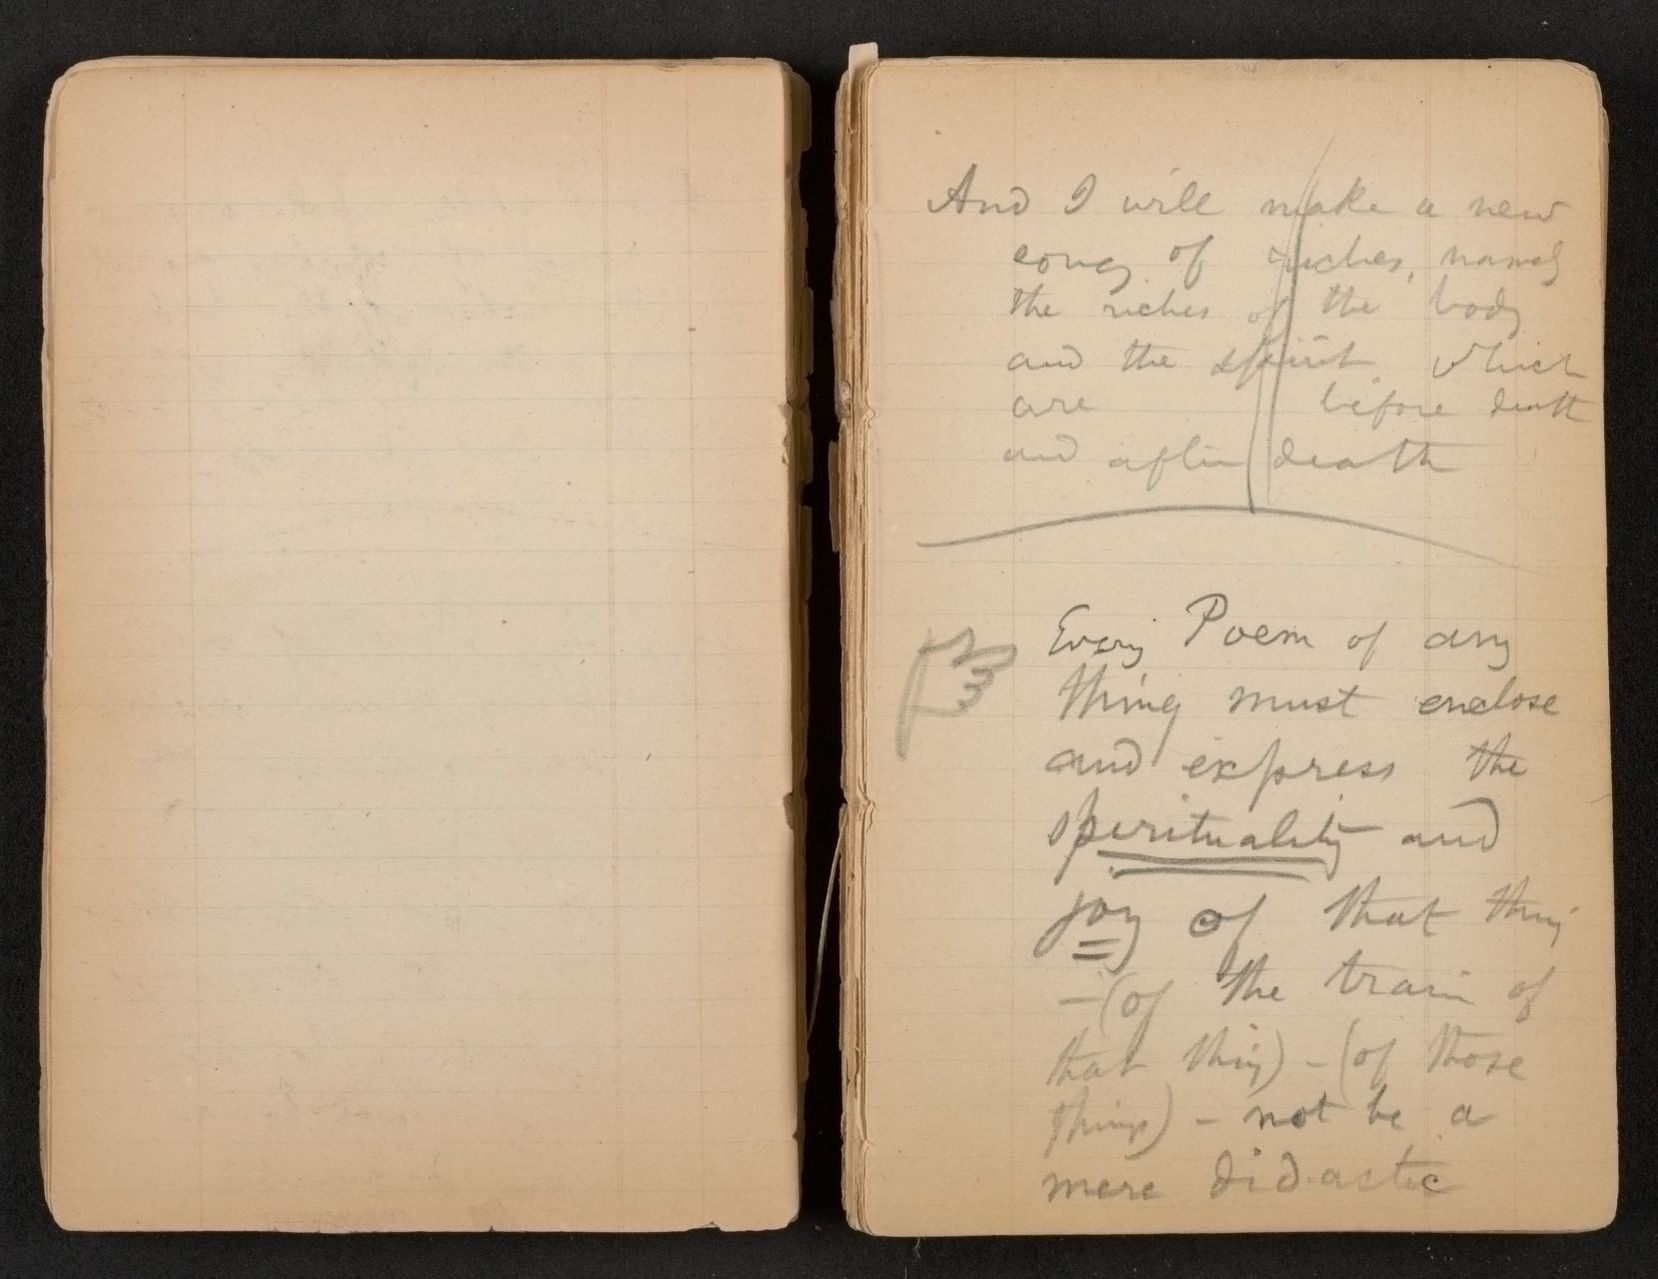 And I will make a new
song of riches, namely
the riches of the body
and the spirit which
are before death
and after death
Every Poem of any
thing must enclose
and express the
spirituality and
joy of that thing
—(of the train of
that thing) – (of those
things) – not be a
mere didactic